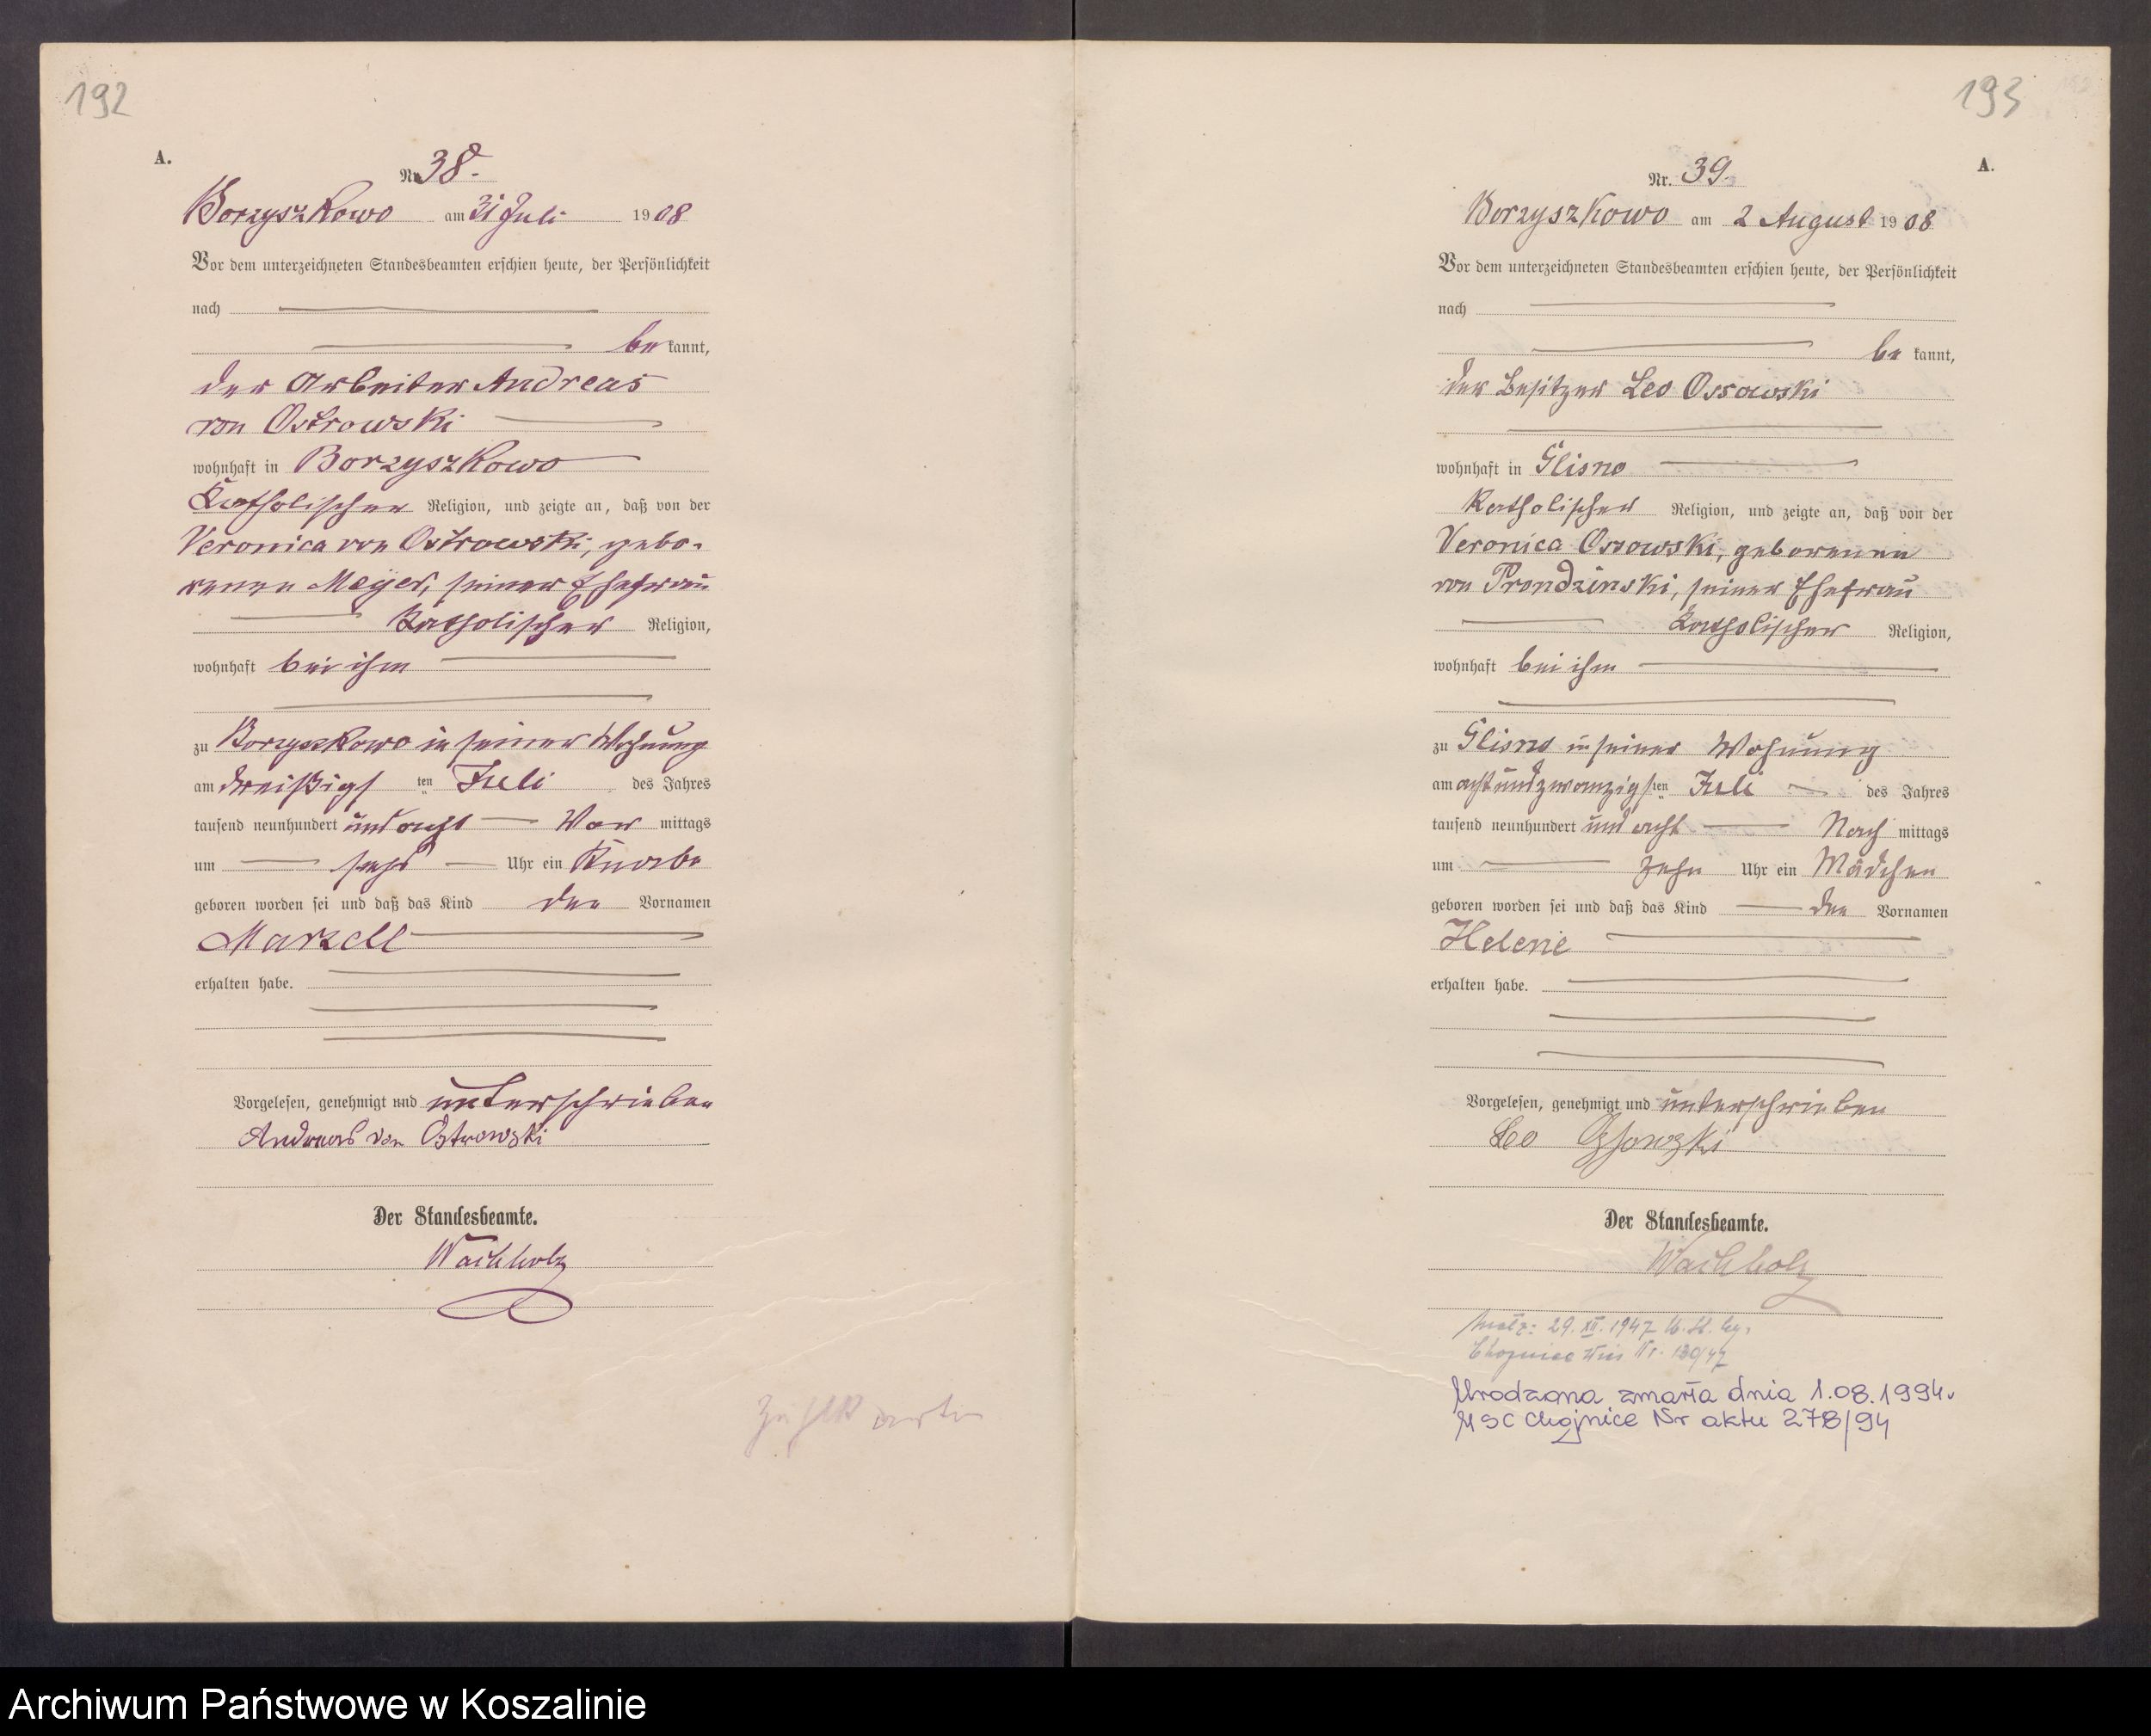 192
A.
Nr. 38.
Borzyszkowo am 31 Juli 1908
Vor dem unterzeichneten Standesbeamten erschien heute, der Persönlichkeit
nach
be kannt,
der Arbeiter Andreas
von Ostrowski
wohnhaft in Borzyszkowo
Katholischer Religion, und zeigte an, daß von der
Veronica von Ostrowski, gebo-
renen Meyer, seiner Ehefrau
Katholischer Religion,
wohnhaft bei ihm
zu Borzyszkowo in seiner Wohnung
am dreißigsten Juli des Jahres
tausend neunhundert und acht Vor mittags
um sechs Uhr ein Knabe
geboren worden sei und daß das Kind den Vornamen
Marzell
erhalten habe.
Vorgelesen, genehmigt und unterschrieben
Andreas von Ostrowski
Der Standesbeamte.
Wachholz
193
A.
Nr. 39.
Borzyszkowo am 2 August 1908
Vor dem unterzeichneten Standesbeamten erschien heute, der Persönlichkeit
nach
be kannt,
der Besitzer Leo Ossowski
wohnhaft in Glisno
Katholischer Religion, und zeigte an, daß von der
Veronica Ossowski, geborenen
von Prondzinski, seiner Ehefrau
Katholischer Religion,
wohnhaft bei ihm
zu Glisno in seiner Wohnung
am achtundzwanzigsten Juli des Jahres
tausend neunhundert und acht Nach mittags
um zehn Uhr ein Mädchen
geboren worden sei und daß das Kind den Vornamen
Helene
erhalten habe.
Vorgelesen, genehmigt und unterschrieben
Leo Ossowski
Der Standesbeamte.
Wachholz
29.XII.1947
Nr. 130/47
Urodzona zmarła dnia 1.08.1994.
USC Chojnice Nr aktu 278/94
Archiwum Państwowe w Koszalinie